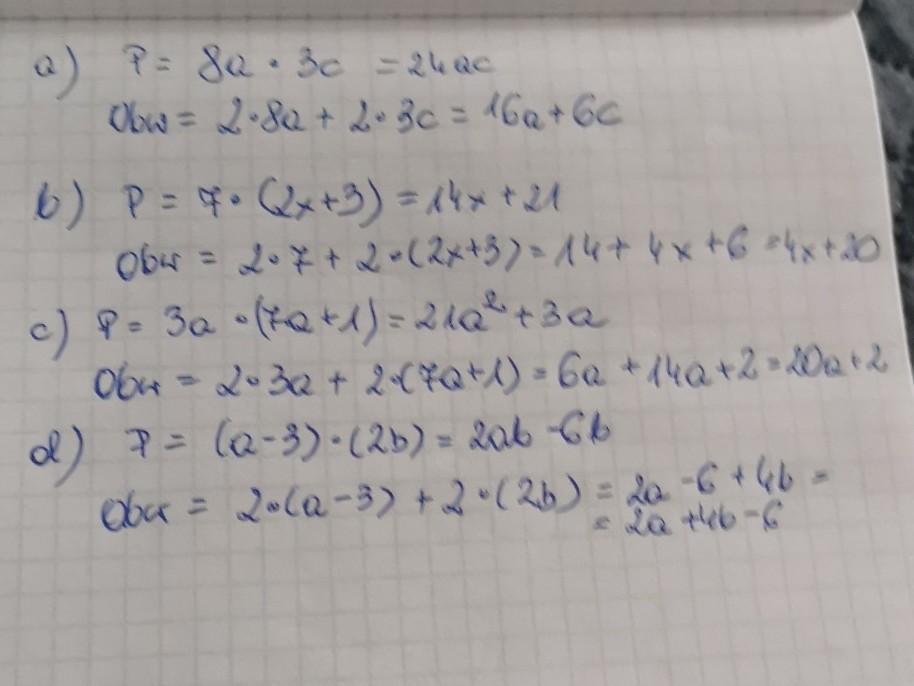 a) P = 8a · 3c = 24ac
Obw = 2·8a + 2·3c = 16a + 6c
b) P = 7·(2x+3) = 14x + 21
Obw = 2·7 + 2·(2x+3) = 14 + 4x + 6 = 4x + 20
c) P = 3a·(7a+1) = 21a² + 3a
Obw = 2·3a + 2·(7a+1) = 6a + 14a + 2 = 20a + 2
d) P = (a-3)·(2b) = 2ab - 6b
Obw = 2·(a-3) + 2·(2b) = 2a - 6 + 4b =
= 2a + 4b - 6